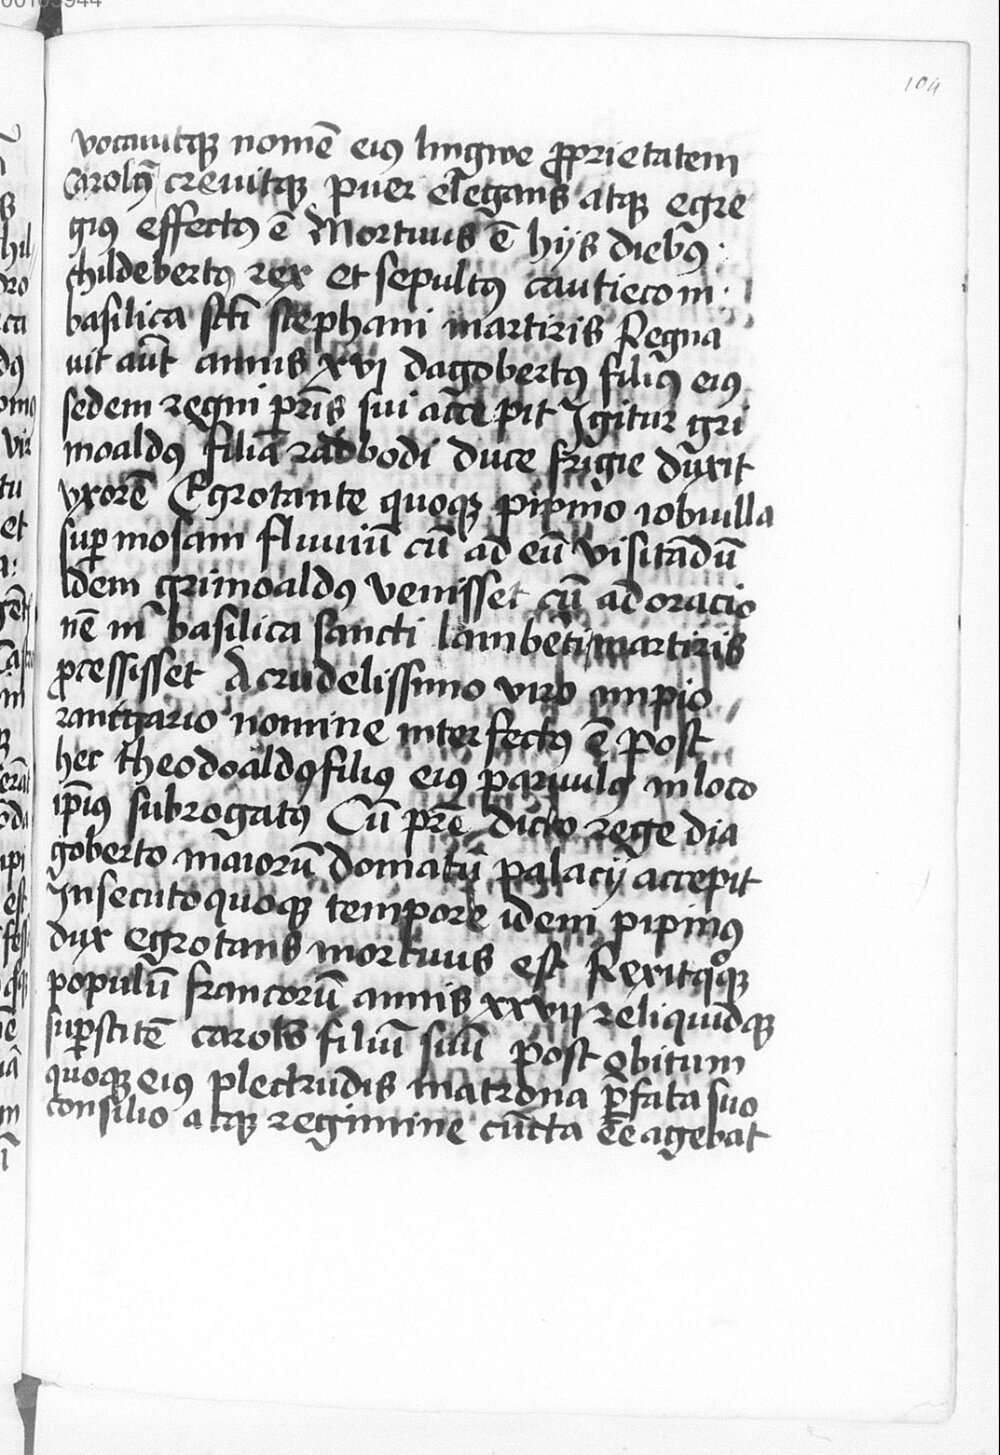 104
vocauitqꝫ nomē eiꝰ lingwe ꝓprietatem
Carolū creuitqꝫ puer elegans atqꝫ egre
giꝰ effectꝰ ē Mortuus ē hijs diebꝰ
childebertꝰ rex et sepultꝰ cautieco in
basilica sc̄ti stephani martiris Regna
uit aūt annis xvj dagobertꝰ filiꝰ eiꝰ
sedem regni pr̄is sui acce pit Igitur gri
moaldꝰ filiā radbodi duce frigie duxit
vxorē Egrotante quoqꝫ pipino iobuilla
suꝑ mosam fluuiū cū ad eū visitādū
Idem grimoaldꝰ venisset cū ad oracio
nē in basilica sancti lamb̄eti martiris
ꝓcessisset A crudelissimo viro impio
rantgario nomine interfectꝰ ē post
hec theodoaldꝰ filiꝰ eiꝰ paruulꝰ in loco
ip̄ius subrogatꝰ Cū pr̄e dicto rege dia
goberto maiorū domatū palacij accepit
In secuto quoqꝫ tempore idem pipinꝰ
dux egrotans mortuus est Rexitqꝫ
populū francorū annis xxvij reliquidqꝫ
suꝑstitē carols filiū suū post obitum
quoqꝫ eiꝰ plectrudis matrona p̄fata suo
consilio atqꝫ regimine cūcta ēe agebat